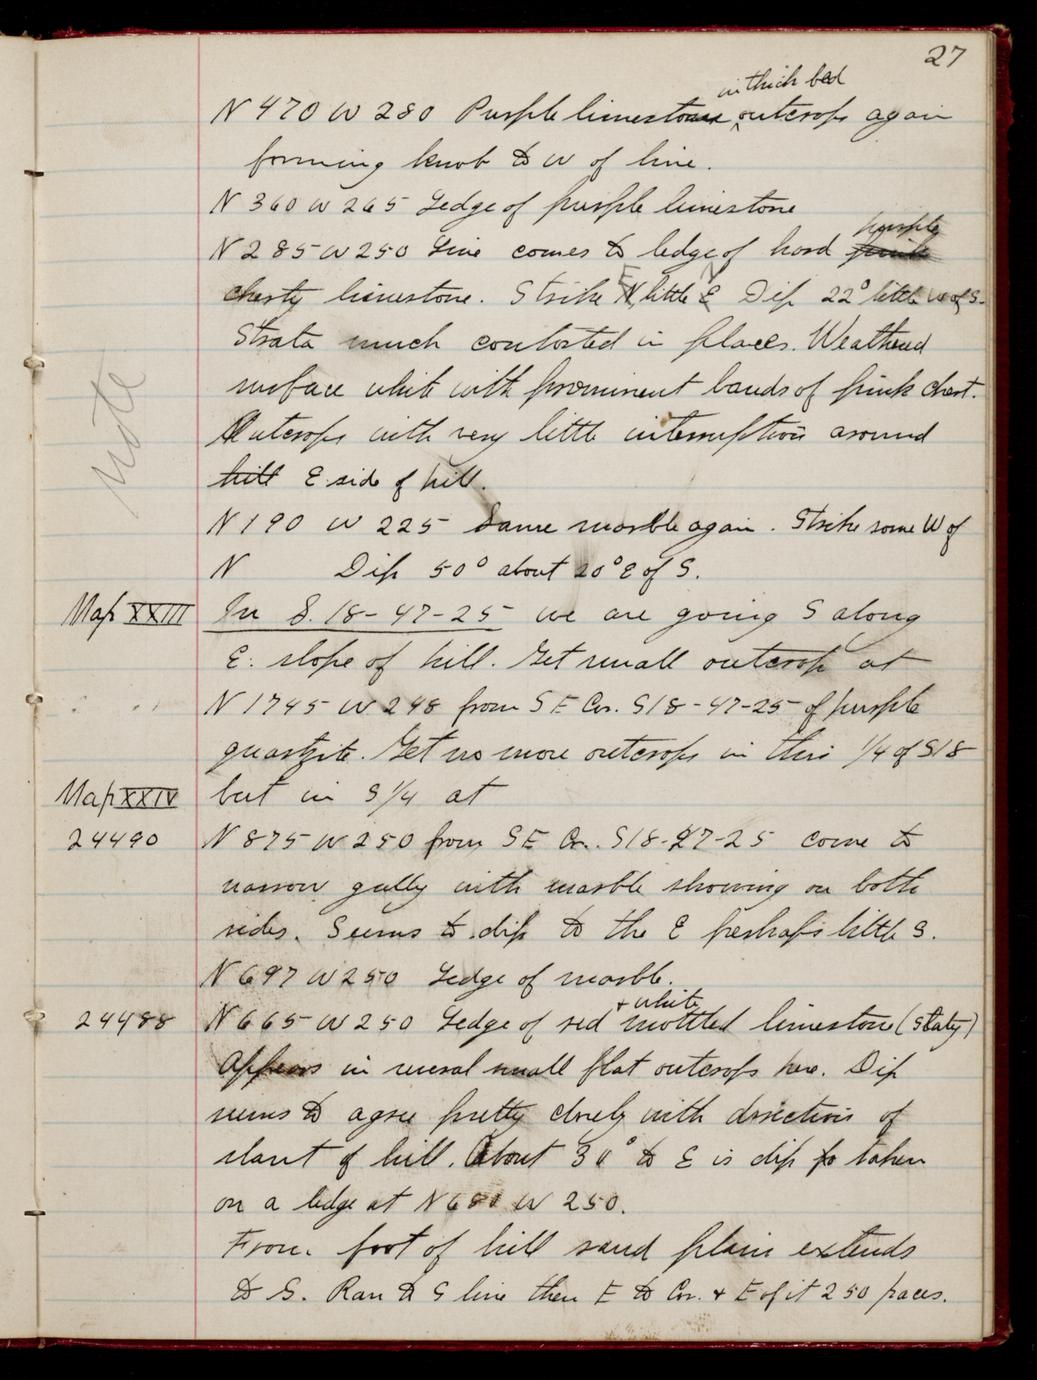 27
in thick bed
N 470 W 280 Purple limestone outcrops again
forming knob to W of line.
N 360 W 265 Ledge of purple limestone
purple
N 285 W 250 Line comes to ledge of hard pink
cherty limestone. Strike N little E Dip 22° little W of S.
Strata much contorted in places. Weathered
surface white with prominent bands of pink chert.
Outcrops with very little interruption around
note
hill E. side of hill.
N 190 W 225 Same marble again. Strike some W of
N Dip 50° about 20° E of S.
Map XXIII In S. 18-47-25 we are going S along
E. slope of hill. Get small outcrop at
N 1745 W 248 from SE Cor. S18-47-25 of purple
quartzite. Get no more outcrops in this 1/4 of S18
Map XXIV but in S 1/4 at
24490 N 875 W 250 from SE Cor. S18-47-25 come to
narrow gully with marble showing on both
sides. Seems to dip to the E perhaps little S.
N 697 W 250 Ledge of marble.
+ white
24488 N 665 W 250 Ledge of red mottled limestone (slaty)
Appears in several small flat outcrops here. Dip
seems to agree pretty closely with direction of
slant of hill. About 30° to E is dip to taken
on a ledge at N 680 W 250.
From foot of hill sand plain extends
to S. Ran to S line then E to Cor. + E of it 250 paces.